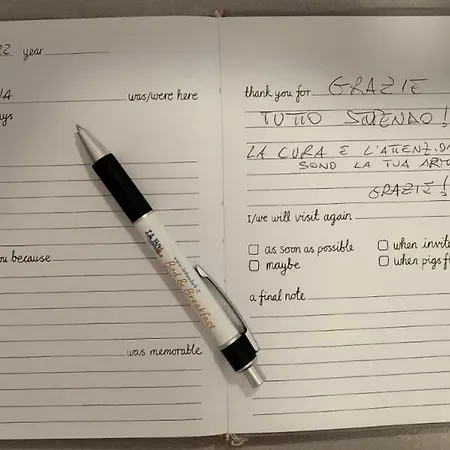 22 year
was/were here
you because
was memorable
thank you for GRAZIE
TUTTO STUPENDO!
LA CURA E L'ATTENZ
SONO LA TUA
GRAZIE!
I/we will visit again
as soon as possible
when invite
maybe
when pigs f
a final note
Bed & Breakfast